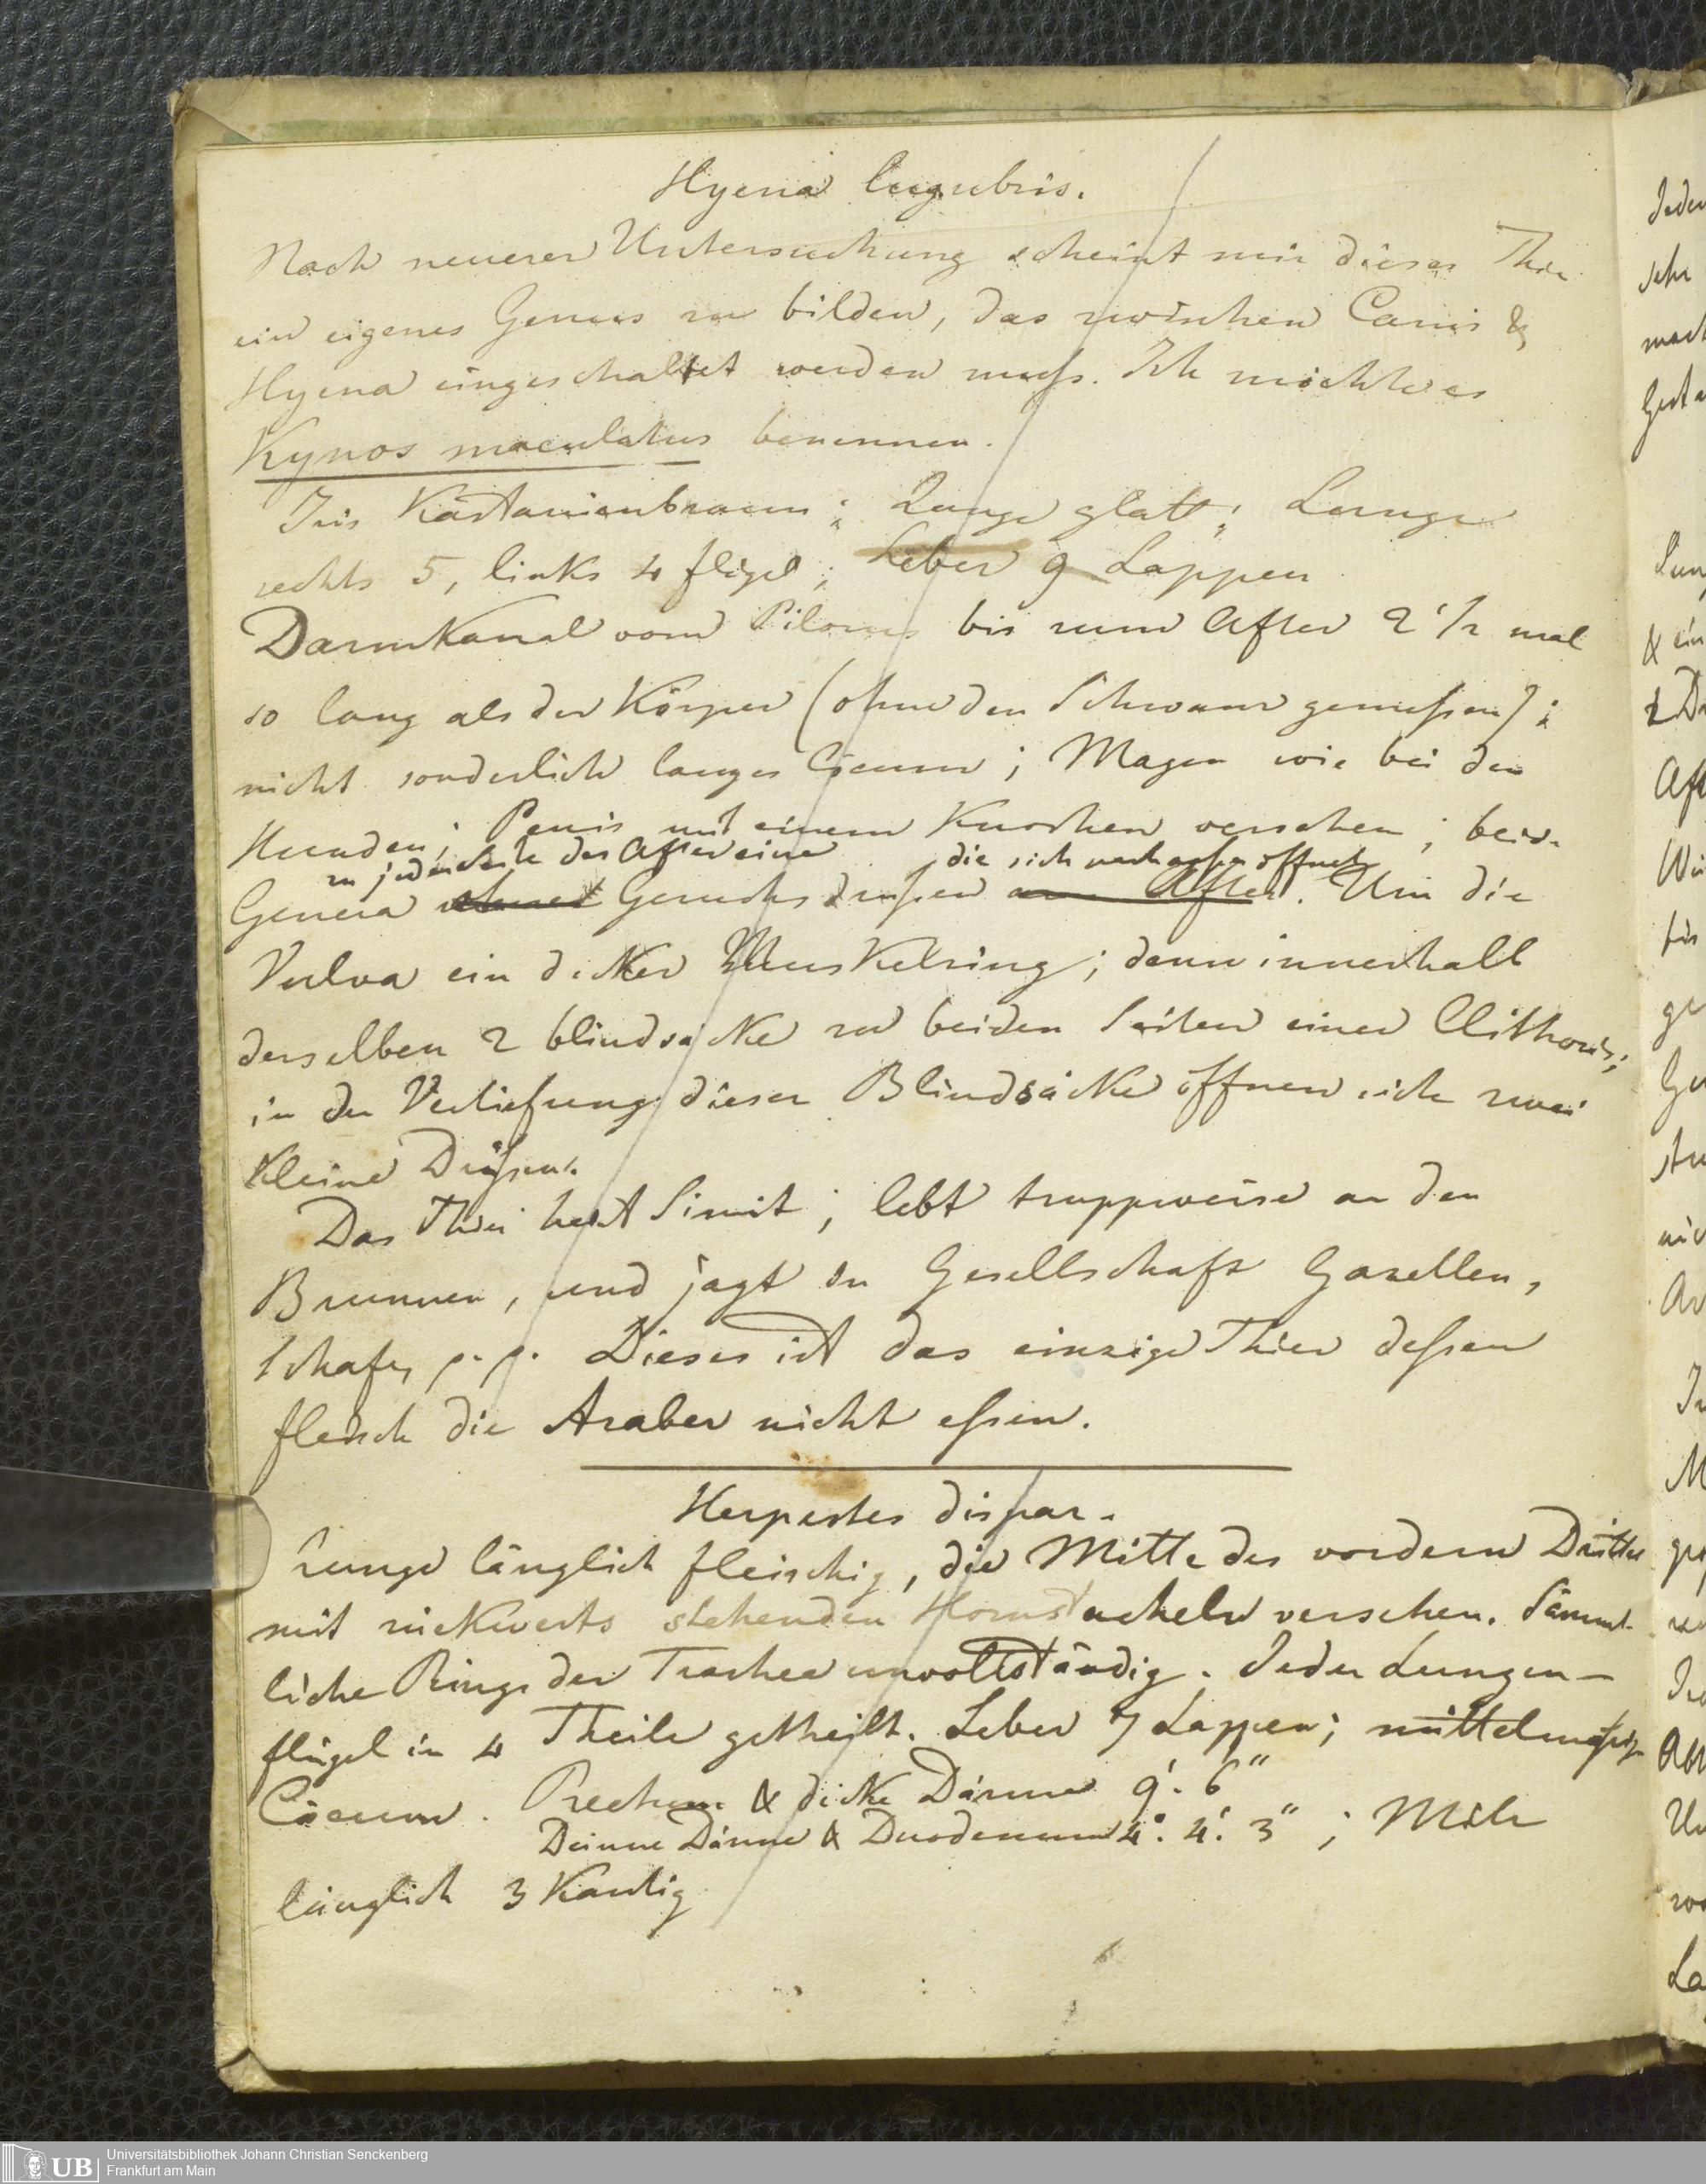 Hyena lugubris.
Nach neuerer Untersuchung scheint mir dieses Thier
ein eigenes Genus zu bilden, das zwischen Canis &
Hyena eingeschaltet werden muß. Ich möchte es
Kynos maculatus benennen.
Iris Kastanienbraun; Zunge glatt; Lunge
rechts 5, links 4 flügel; Leber 9 Lappen
Darmkanal vom Pilorus bis zum After 2 1/2 mal
so lang als der Körper (ohne den Schwanz gemeßen);
nicht sonderlich langes Cöcum; Magen wie bei den
Hunden; Penis mit einem Knochen versehen; beide
zu jeder Seite des After eine die sich nach außen öffnet
Genera Geruchsdrüsen am After. Um die
Vulva ein dicker Muskelring; dann innerhalb
derselben 2 blindsäcke zu beiden Seiten einer Clithoris;
in der Vertiefung dieser Blindsäcke öffnen sich zwei
kleine Drüsen.
Das Thier heist Simit; lebt truppweise an den
Brunnen, und jagt in Gesellschaft Gazellen,
Schafe, p. p. Dieses ist das einzige Thier deßen
fleisch die Araber nicht eßen.
Herpestes dispar.
Zunge länglich fleischig, die Mitte des vordern Drittel
mit rückwerts stehenden Hornstacheln versehen. Sämmt-
liche Ringe der Trachea unvollständig. Jeder Lungen-
flügel in 4 Theile getheilt. Leber 7 Lappen; mittelmäßig
Cöcum. Rectum & dicke Därme 9'. 6"
Dünne Därme & Duodenum 4°. 4'. 3"; Milz
länglich 3 Kantig
Universitätsbibliothek Johann Christian Senckenberg
Frankfurt am Main
UB